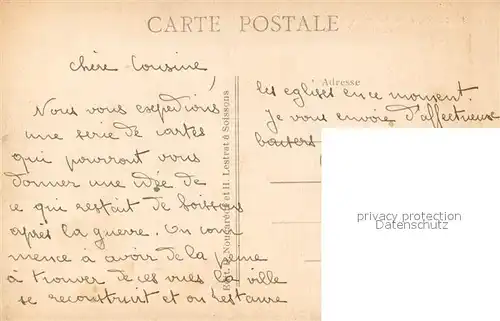 CARTE POSTALE
chère Cousine,
Nous vous expedions
une serie de cartes
qui pourront vous
donner une idée de
ce qui restait de Soissons
après la guerre. On com
mence à avoir de la peine
à trouver de ces vues la ville
se reconstruit et on restaure
Edit. P. Nougarède et H. Lestrat à Soissons
Adresse
les eglises en ce moment.
Je vous envoie d'affectueux
baisers
privacy protection
Datenschutz